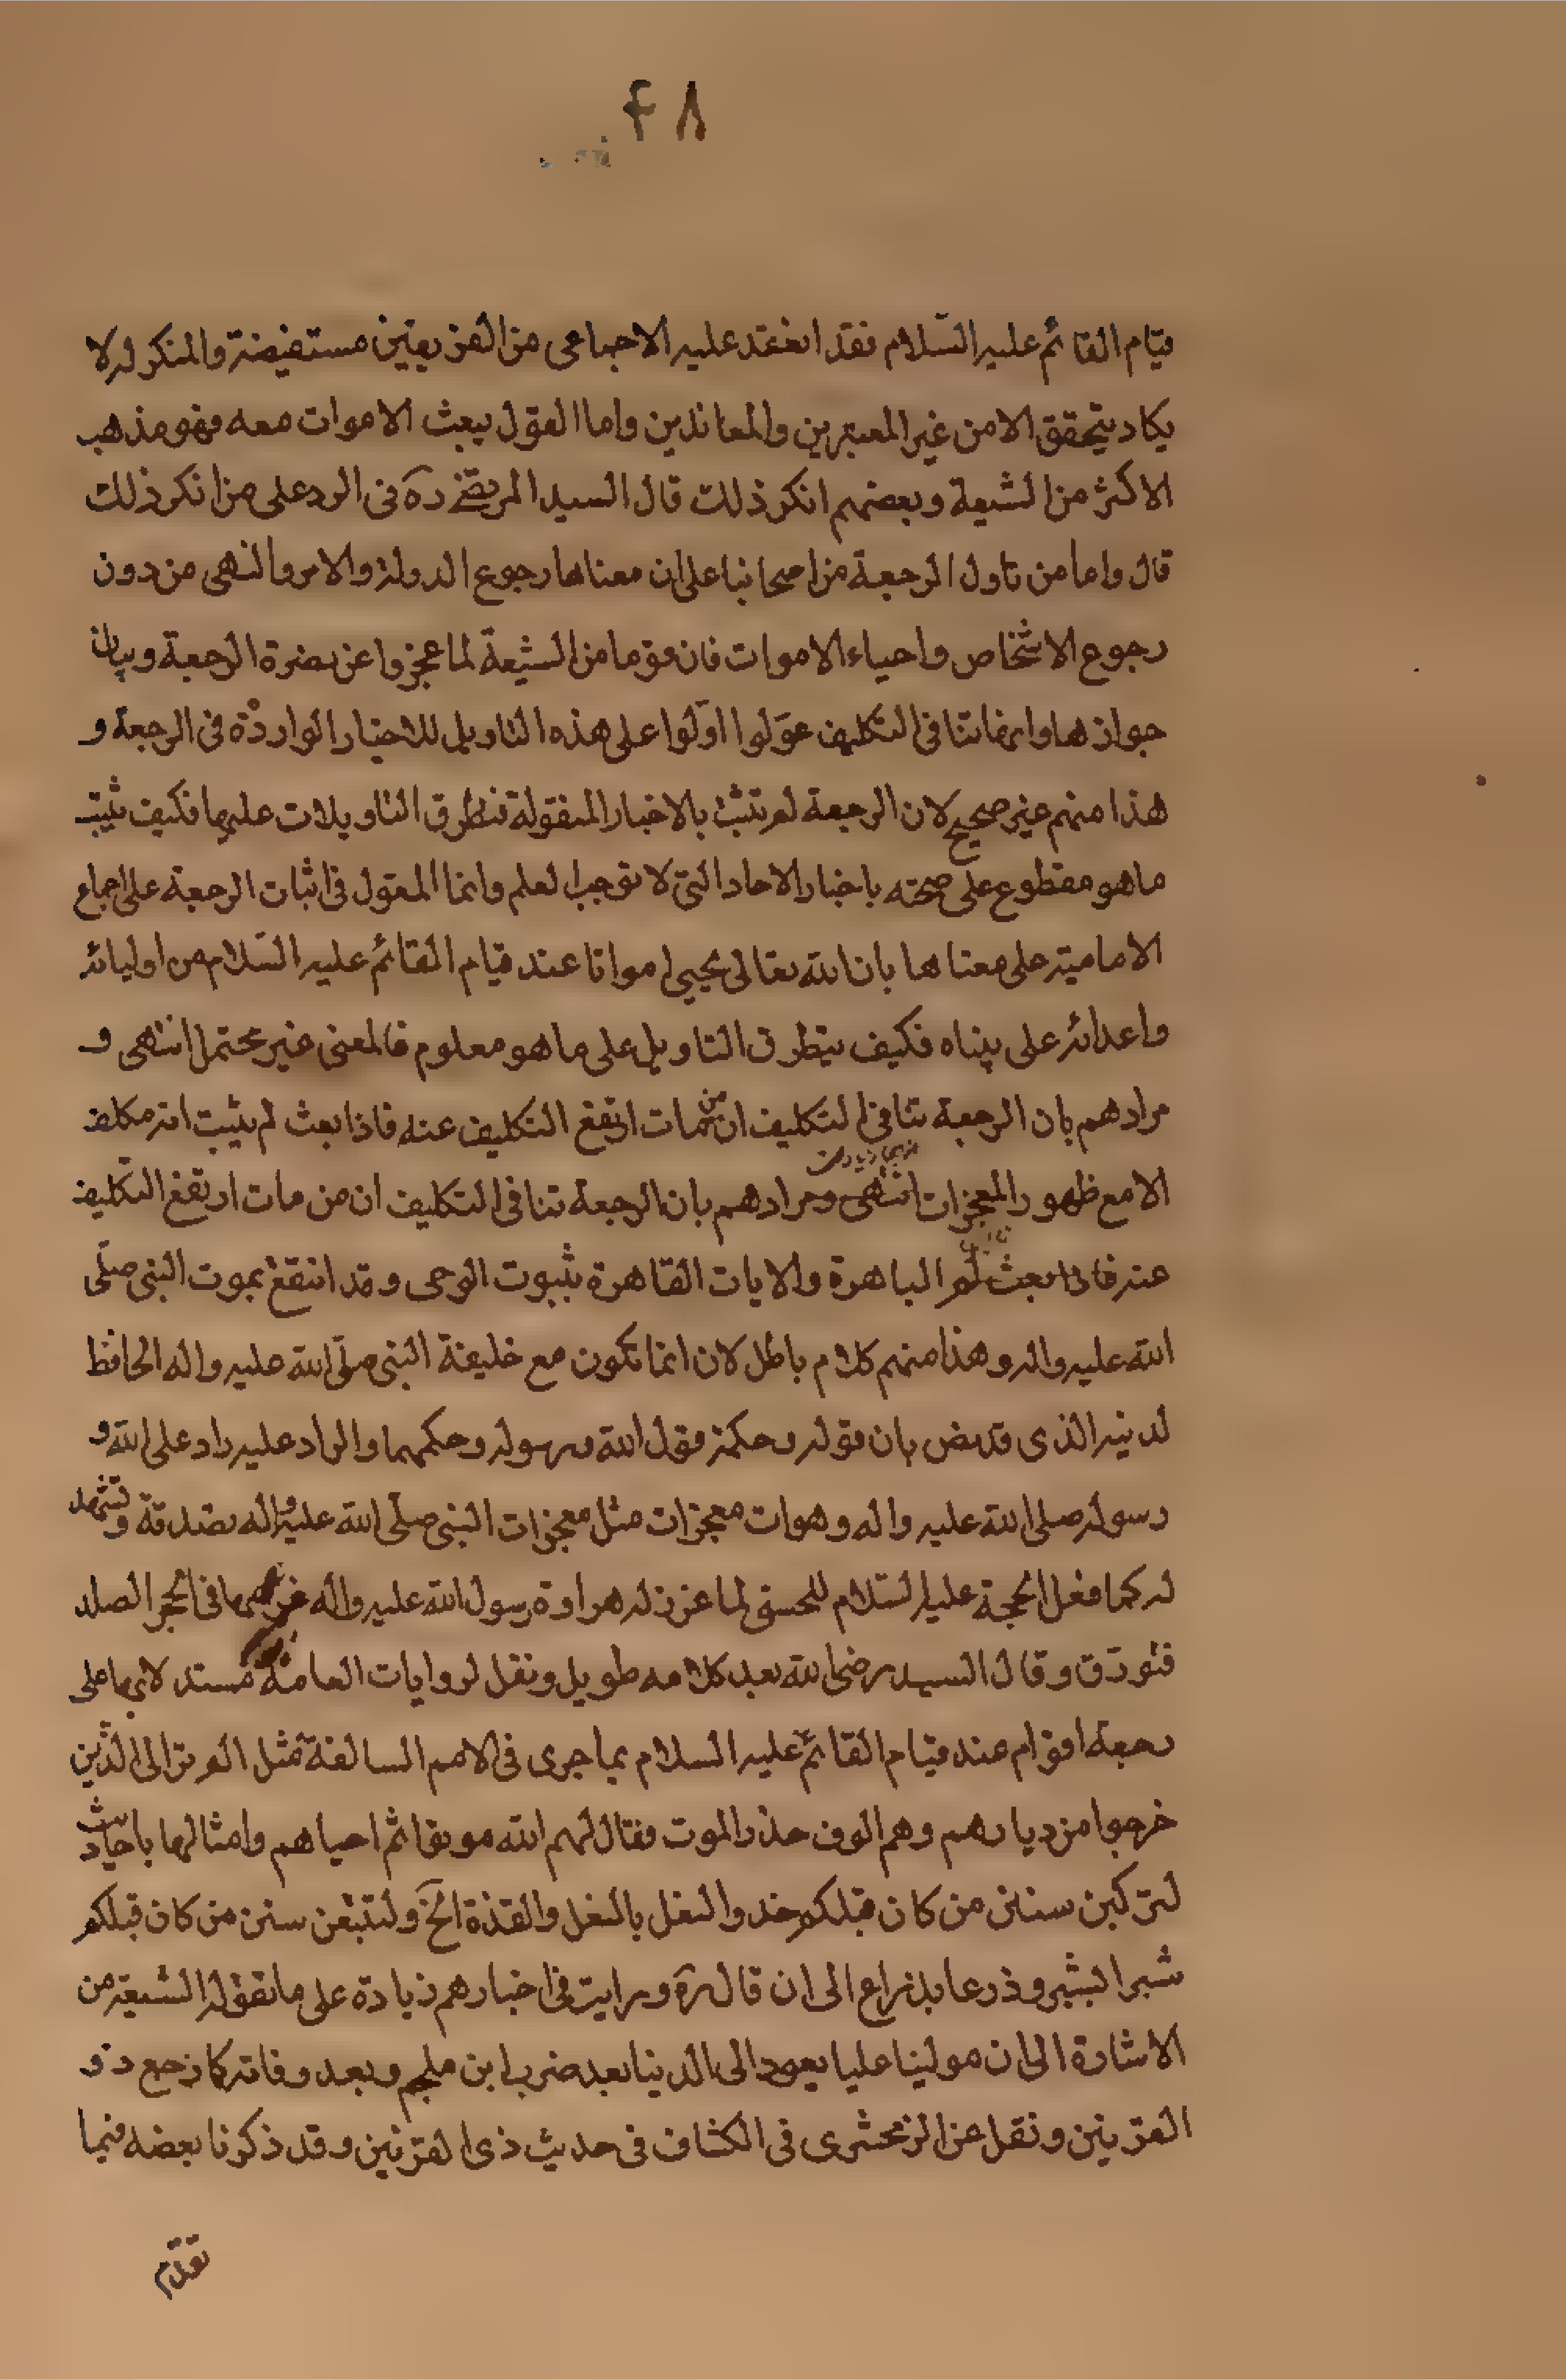 ۴۸
قيام القائم عليه السّلام فقد انعقد عليه الاجماعى من الفريقين مستفيضة والمنكر له لا
يكاد يتحقق الا من غير المعتبرين والمعاندين واما القول ببعث الاموات معه فهو مذهب
الاكثر من الشيعة وبعضهم انكر ذلك قال السيد المرتضى ره فى الرد على من انكر ذلك
قال واما من تاول الرجعة من اصحابنا على ان معناها رجوع الدولة والامر والنهى من دون
رجوع الاشخاص واحياء الاموات فان قوما من الشيعة لما عجزوا عن نصرة الرجعة وبيان
جوازها وانها تنافى التكليف عوّلوا اوّلوا على هذه التاويل للاخبار الواردة فى الرجعة و
هذا منهم غير صحيح لان الرجعة لم تثبت بالاخبار المنقولة فتطرق التاويلات عليها فكيف تثبت
ما هو مقطوع على صحته باخبار الاحاد التى لا توجب العلم وانما المعول فى اثبات الرجعة على اجماع
الامامية على معناها بان الله تعالى يحيى امواتا عند قيام القائم عليه السّلام من اوليائه
واعدائه على بيناه فكيف يتطرق التاويل على ما هو معلوم فالمعنى غير محتمل انتهى و
مرادهم بان الرجعة تنافى التكليف ان من مات ارتفع التكليف عنه فاذا بعث لم يثبت انه مكلف
الا مع ظهور المعجزات انتهى ومرادهم بان الرجعة تنافى التكليف ان من مات ارتفع التكليف
عنه فاذا بعث لم الباهرة والايات القاهرة بثبوت الوحى وقد انقطع بموت النبى صلّى
الله عليه واله وهذا منهم كلام باطل لان انما تكون مع خليفة النبى صلّى الله عليه واله الحافظ
لدينه الذى قد نص بان قوله وحكمه قول الله ورسوله وحكمهما والراد عليه راد على الله و
رسوله صلى الله عليه واله وهوات معجزات مثل معجزات النبى صلّى الله عليه واله تصدقة وتشهد
له كما فعل الحجة عليه السّلام للحسنى لما غرز له هراوة رسول الله عليه واله فى الحجر الصلد
فئورق وقال السيد رضى الله بعد كلامه طويل ونقل لروايات العامة مستدلا بها على
رجعة اقوام عند قيام القائم عليه السلام بما جرى فى الامم السالفة مثل الم تر الى الذين
خرجوا من ديارهم وهم الوف حذر الموت فقال لهم الله موتوا ثم احياهم وامثالها باحاديث
لتركبن سنن من كان قبلكم حذو النعل بالنعل والقذة الخ ولتتبعن سنن من كان قبلكم
شبرا بشبر وذرعا بذراع الى ان قال ره ورايت فى اخبارهم زيادة على ما تقوله الشيعة من
الاشارة الى ان مولينا عليا يعود الى الدينا بعد ضرب ابن ملجم وبعد وفاته كما رجع ذو
القرنين ونقل عن الزمخشرى فى الكشاف فى حديث ذى القرنين وقد ذكرنا بعضه فيما
تقدم